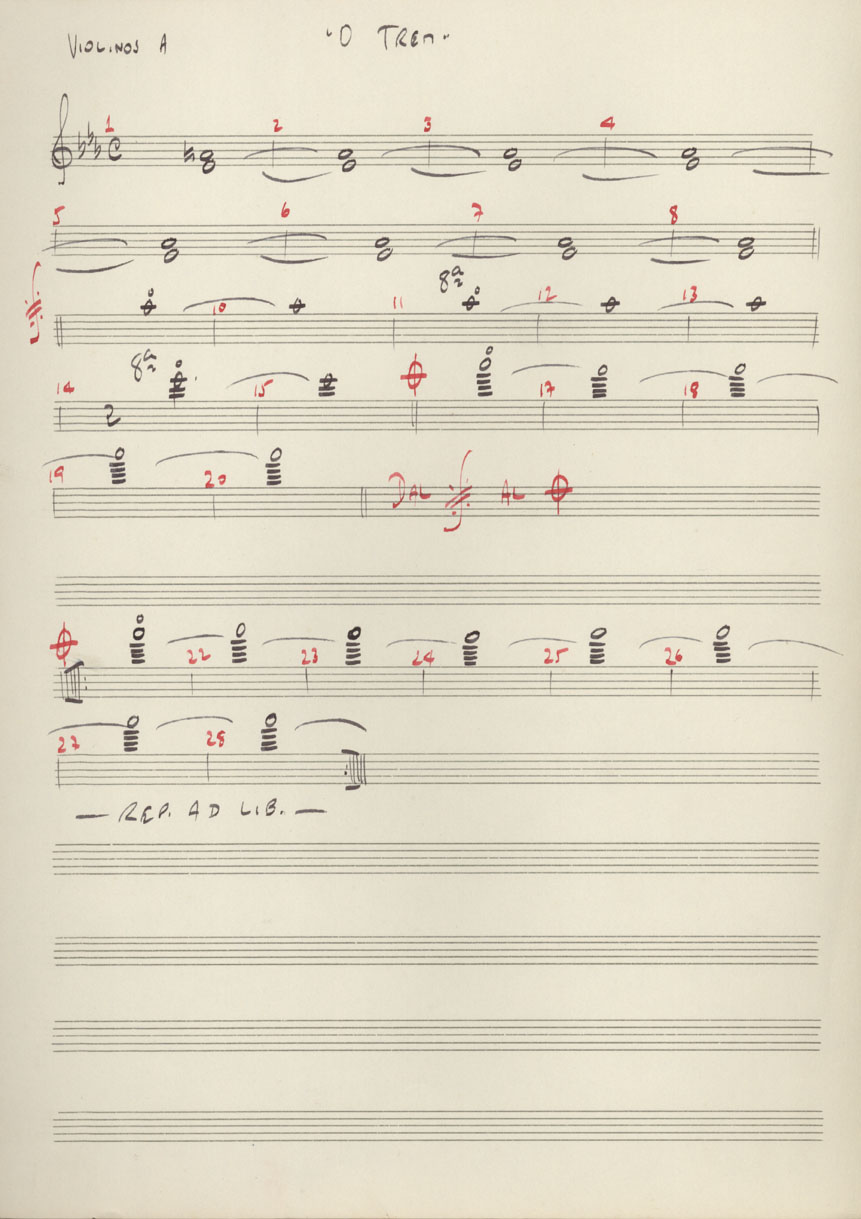 VIOLINOS A "O TREM"
1 2 3 4
5 6 7 8
10 11 8ª 12 13
14 8ª 15 17 18
2
19 20 DAL AL
22 23 24 25 26
27 28
— REP. AD LIB. —